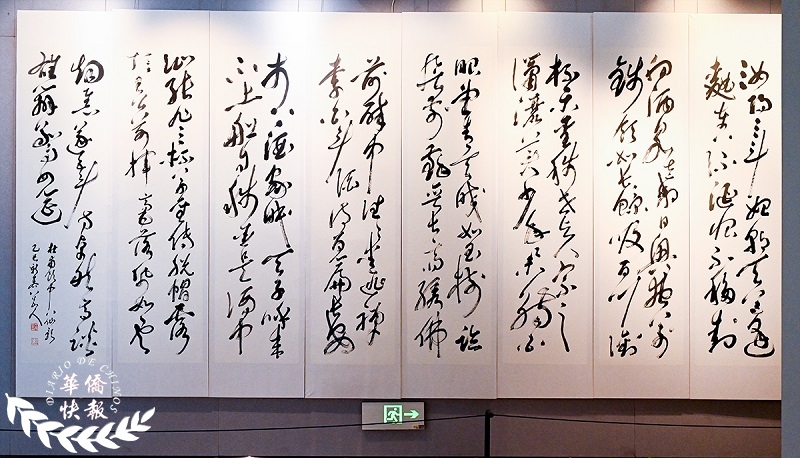 汝陽三斗始朝天道逢
麴車口流涎恨不移封
向酒泉左相日興費萬
錢飲如長鯨吸百川銜
杯樂聖稱世賢宗之
瀟灑美少年舉觴白
眼望青天皎如玉樹臨
風前蘇晉長齋繡佛
前醉中往往愛逃禪
李白斗酒詩百篇長安
市上酒家眠天子呼來
不上船自稱臣是酒中
仙張旭三杯草聖傳脫帽露
頂王公前揮毫落紙如雲
煙焦遂五斗方卓然高談
雄辯驚四筵
杜甫飲中八仙歌
乙巳
DIARIO DE CHINOS
華僑
快報